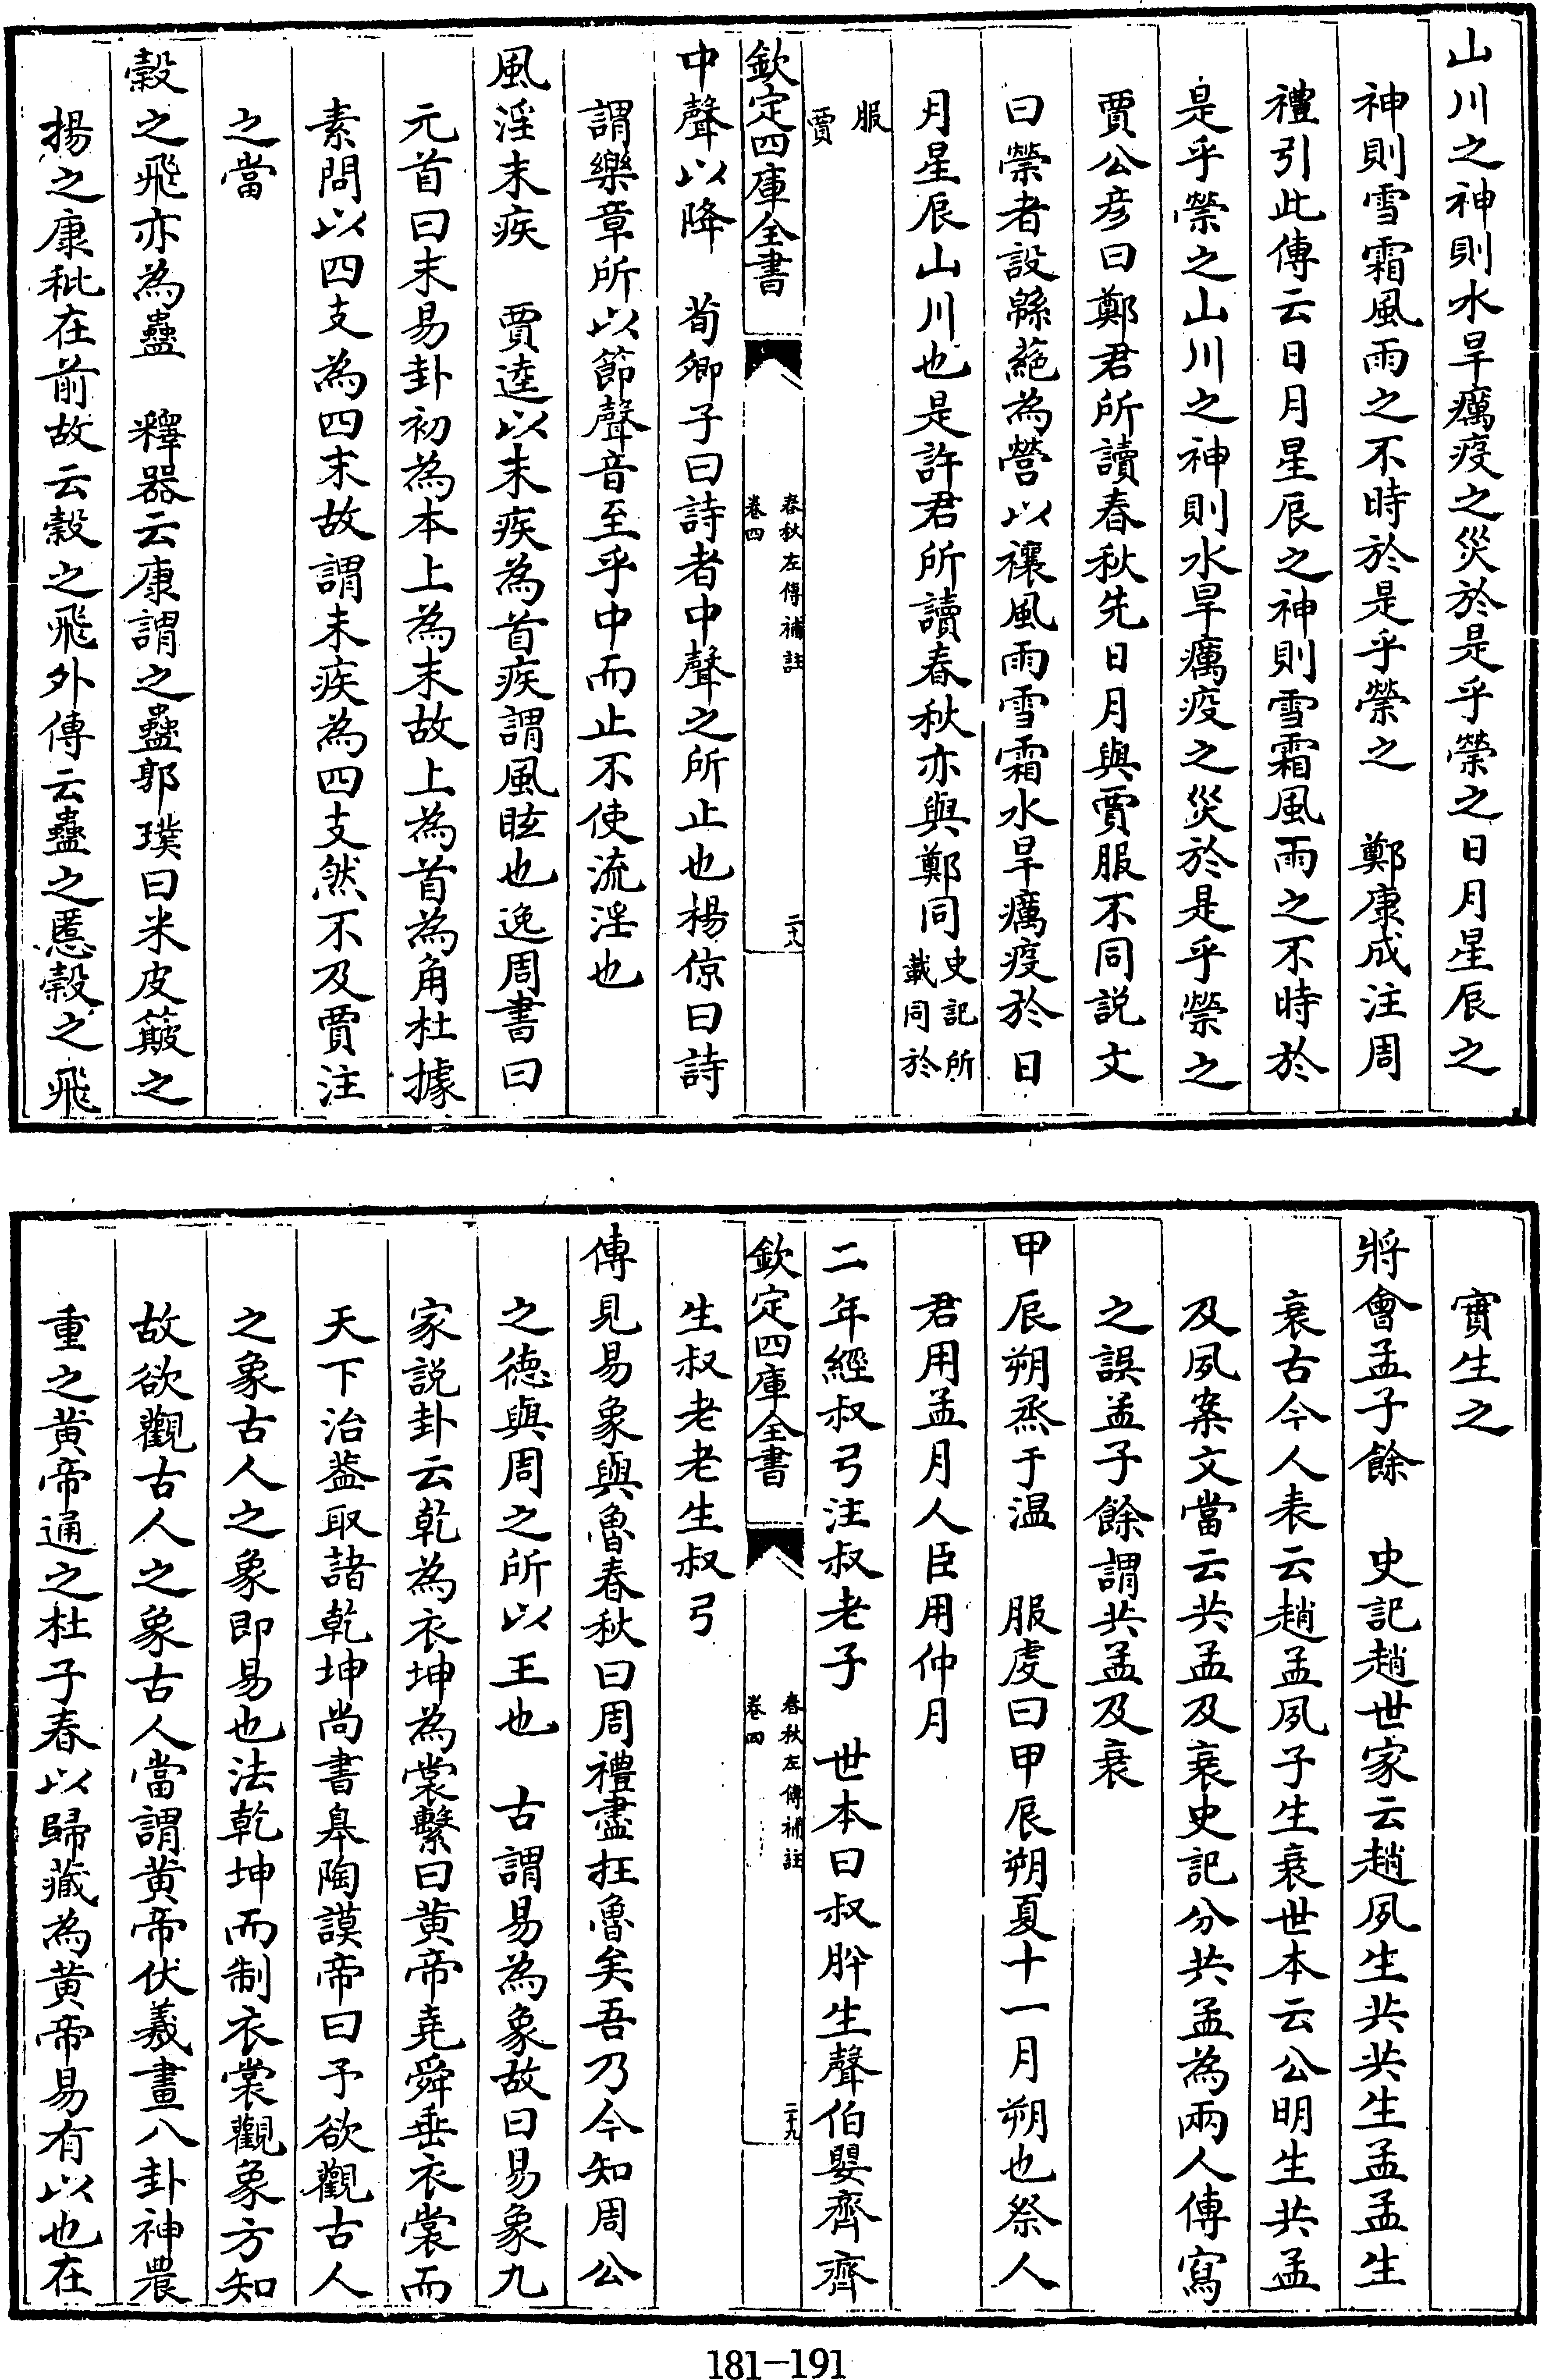 山川之神則水旱癘疫之災於是乎禜之日月星辰之
神則雪霜風雨之不時於是乎禜之　鄭康成注周
禮引此傳云日月星辰之神則雪霜風雨之不時於
是乎禜之山川之神則水旱癘疫之災於是乎禜之
賈公彦曰鄭君所讀春秋先日月與賈服不同説文
曰禜者設緜蕝為營以禳風雨雪霜水旱癘疫於日
月星辰山川也是許君所讀春秋亦與鄭同史記所載同於
服賈
欽定四庫全書
春秋左傳補註
卷四
二十八
中聲以降　荀卿子曰詩者中聲之所止也楊倞曰詩
謂樂章所以節聲音至乎中而止不使流淫也
風淫末疾　賈逵以末疾為首疾謂風眩也逸周書曰
元首曰末易卦初為本上為末故上為首為角杜據
素問以四支為四末故謂末疾為四支然不及賈注
之當
穀之飛亦為蠱　釋器云康謂之蠱郭璞曰米皮簸之
揚之康秕在前故云穀之飛外傳云蠱之慝穀之飛
實生之
將會孟子餘　史記趙世家云趙夙生共共生孟孟生
衰古今人表云趙孟夙子生衰世本云公明生共孟
及夙案文當云共孟及衰史記分共孟為兩人傳寫
之誤孟子餘謂共孟及衰
甲辰朔烝于温　服虔曰甲辰朔夏十一月朔也祭人
君用孟月人臣用仲月
二年經叔弓注叔老子　世本曰叔肸生聲伯嬰齊齊
欽定四庫全書
春秋左傳補註
卷四
二十九
生叔老老生叔弓
傳見易象與魯春秋曰周禮盡在魯矣吾乃今知周公
之德與周之所以王也　古謂易為象故曰易象九
家説卦云乾為衣坤為裳繫曰黄帝堯舜垂衣裳而
天下治葢取諸乾坤尚書臯陶謨帝曰予欲觀古人
之象古人之象即易也法乾坤而制衣裳觀象方知
故欲觀古人之象古人當謂黄帝伏羲畫八卦神農
重之黄帝通之杜子春以歸藏為黄帝易有以也在
181-191